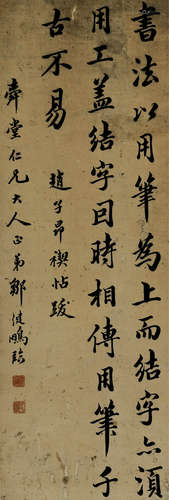 書法以用筆為上而結字亦須
用工蓋結字因時相傳用筆千
古不易
趙子昂禊帖跋
堂仁兄大人正弟鄒健鵬